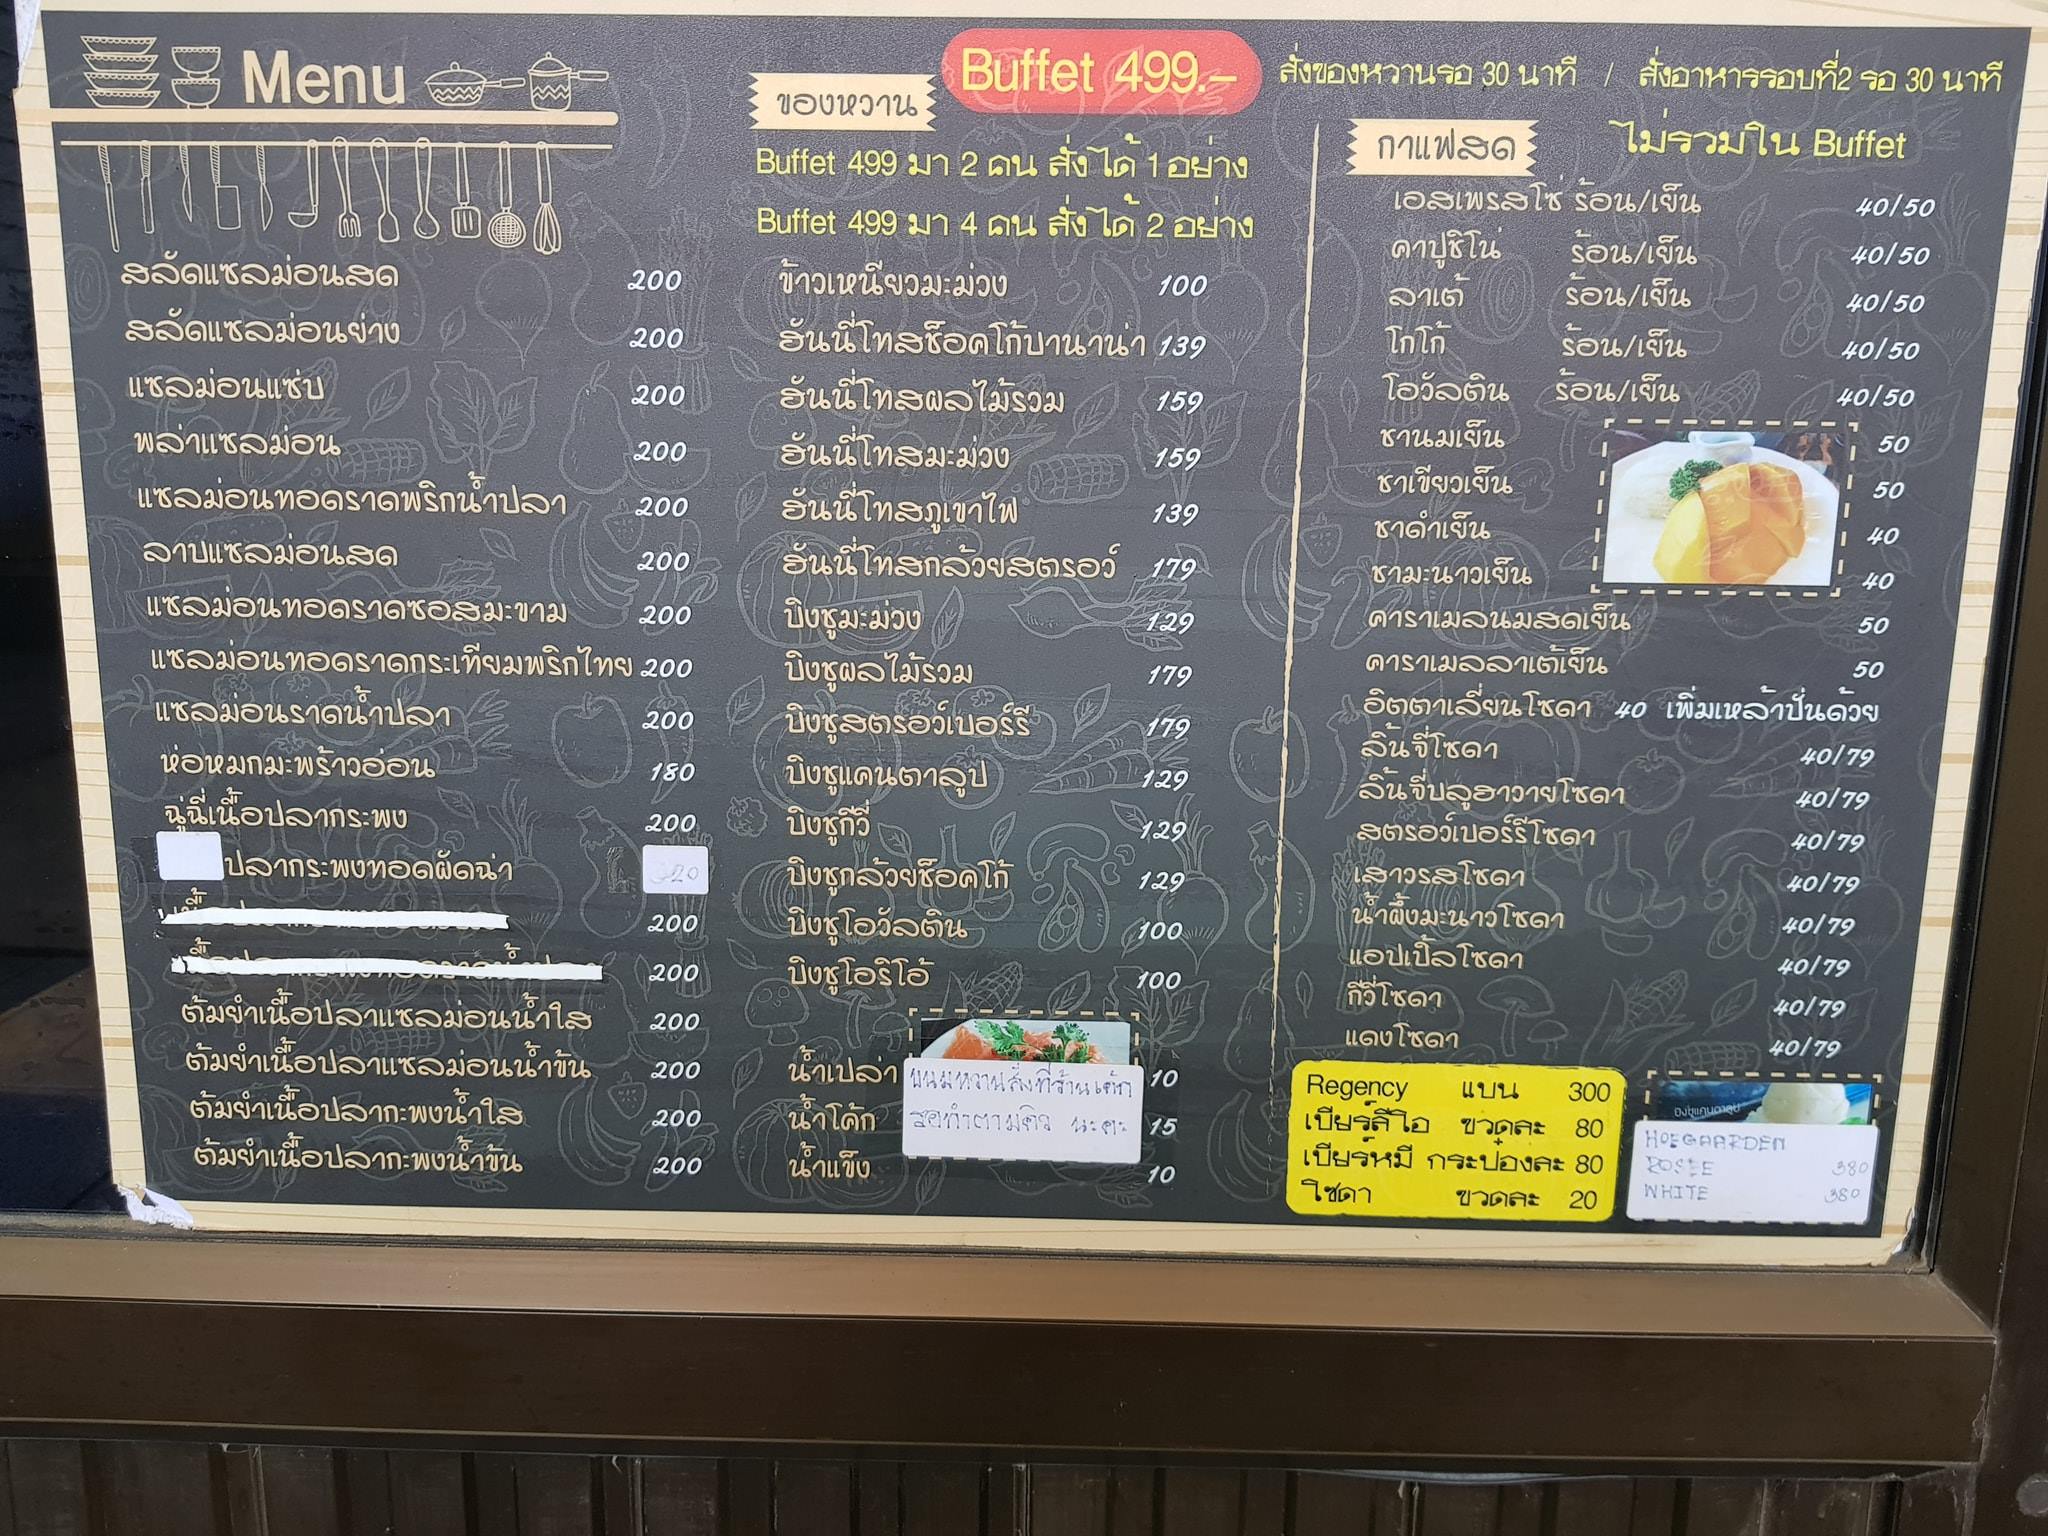 Menu
สลัดแซลม่อนสด 200
สลัดแซลม่อนย่าง 200
แซลม่อนแซ่บ 200
พล่าแซลม่อน 200
แซลม่อนทอดราดพริกน้ำปลา 200
ลาบแซลม่อนสด 200
แซลม่อนทอดราดซอสมะขาม 200
แซลม่อนทอดราดกระเทียมพริกไทย 200
แซลม่อนราดน้ำปลา 200
ห่อหมกมะพร้าวอ่อน 180
ฉู่ฉี่เนื้อปลากระพง 200
ปลากระพงทอดผัดฉ่า 320
200
200
ต้มยำเนื้อปลาแซลม่อนน้ำใส 200
ต้มยำเนื้อปลาแซลม่อนน้ำข้น 200
ต้มยำเนื้อปลากะพงน้ำใส 200
ต้มยำเนื้อปลากะพงน้ำข้น 200
Buffet 499.-
สั่งของหวานรอ 30 นาที / สั่งอาหารรอบที่2 รอ 30 นาที
ของหวาน
Buffet 499 มา 2 คน สั่งได้ 1 อย่าง
Buffet 499 มา 4 คน สั่งได้ 2 อย่าง
ข้าวเหนียวมะม่วง 100
ฮันนี่โทสช็อคโก้บานาน่า 139
ฮันนี่โทสผลไม้รวม 159
ฮันนี่โทสมะม่วง 159
ฮันนี่โทสภูเขาไฟ 139
ฮันนี่โทสกล้วยสตรอว์ 179
บิงซูมะม่วง 129
บิงซูผลไม้รวม 179
บิงซูสตรอว์เบอร์รี 179
บิงซูแคนตาลูป 129
บิงซูกีวี่ 129
บิงซูกล้วยช็อคโก้ 129
บิงซูโอวัลติน 100
บิงซูโอริโอ้ 100
น้ำเปล่า 10
น้ำโค้ก 15
น้ำแข็ง 10
ขนมหวานสั่งที่ร้านเค้ก
รอทำตามคิว นะคะ
กาแฟสด ไม่รวมใน Buffet
เอสเพรสโซ่ ร้อน/เย็น 40/50
คาปูชิโน่ ร้อน/เย็น 40/50
ลาเต้ ร้อน/เย็น 40/50
โกโก้ ร้อน/เย็น 40/50
โอวัลติน ร้อน/เย็น 40/50
ชานมเย็น 50
ชาเขียวเย็น 50
ชาดำเย็น 40
ชามะนาวเย็น 40
คาราเมลนมสดเย็น 50
คาราเมลลาเต้เย็น 50
อิตตาเลี่ยนโซดา 40 เพิ่มเหล้าปั่นด้วย
ลิ้นจี่โซดา 40/79
ลิ้นจี่บลูฮาวายโซดา 40/79
สตรอว์เบอร์รีโซดา 40/79
เสาวรสโซดา 40/79
น้ำผึ้งมะนาวโซดา 40/79
แอปเปิ้ลโซดา 40/79
กีวี่โซดา 40/79
แดงโซดา 40/79
Regency แบน 300
เบียร์ลีโอ ขวดละ 80
เบียร์หมี กระป๋องละ 80
โซดา ขวดละ 20
บิงซูแคนตาลูป
HOEGAARDEN
ROSEE 380
WHITE 380